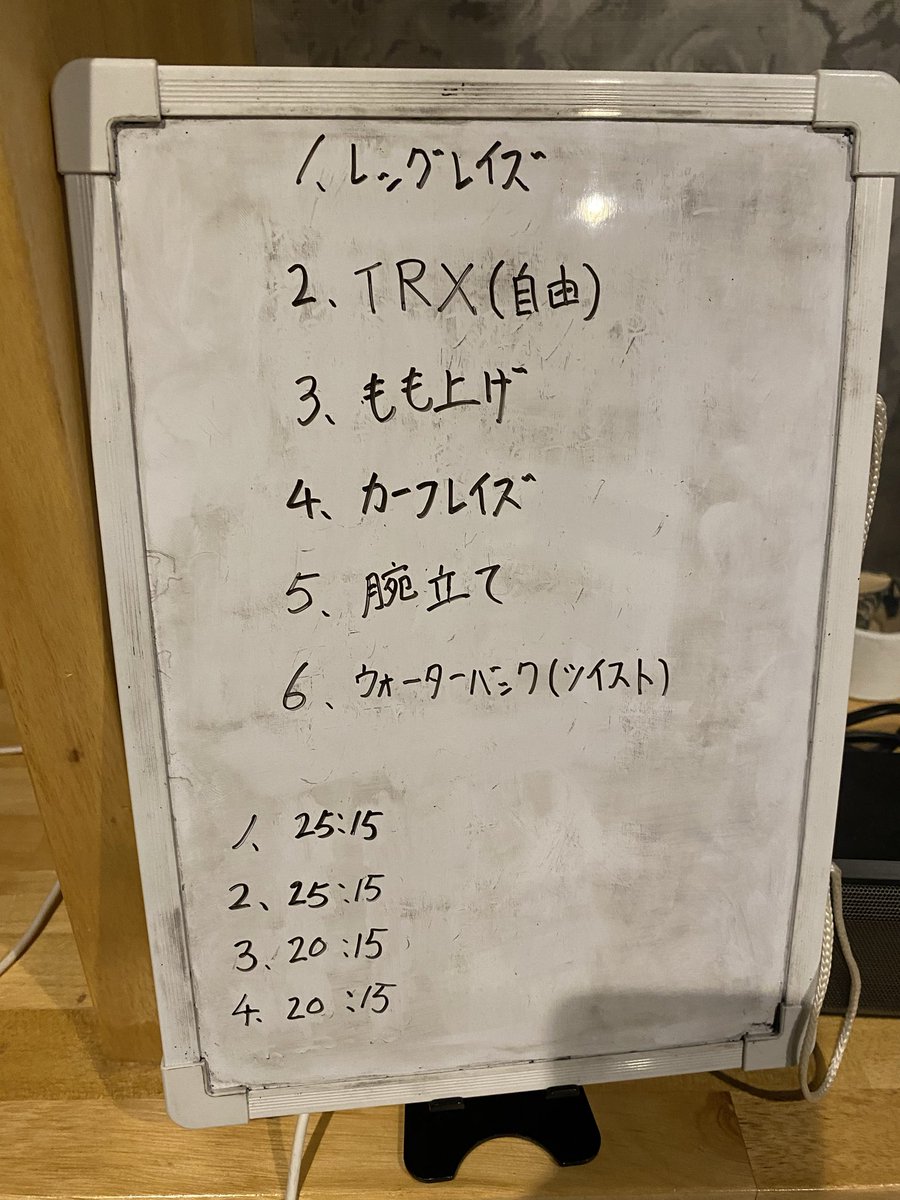 1、レッグレイズ
2、TRX(自由)
3、もも上げ
4、カーフレイズ
5、腕立て
6、ウォーターバック(ツイスト)
1、25:15
2、25:15
3、20:15
4、20:15